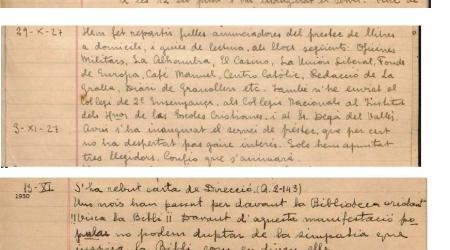 29-X-27 Hem fet repartir fulles anunciadores del prestec de llibres
a domicili, i guies de lectura, als llocs següents: Oficines
Militars, La Alhambra, El Casino, La Unión Liberal, Fonda
de Europa, Café Manuel, Centre Católic, Redacció de la
Gralla, Diari de Granollers etc. També s'he enviat al
Col·legi de 2ª Ensenyança, als Collegis Nacionals al Institut
dels Hnos de las Escoles Cristianes, i al St. Degà del Vallés.
3-XI-27 Avui s'ha inaugurat el servei de préstec, que per cert
no ha despertat pas gaire interés. Sols hem apuntat
tres llegidors. Confio que s'animarà.
13-XI S'ha rebut carta de Direcció. (A. 2-143)
1930 Uns nois han passat per davant la Biblioteca cridant
"Visca la Bebli"! Davant d'aquesta manifestació po
pular no podem duptar de la simpatia que
inspira la Bibli, com en diuen ells.